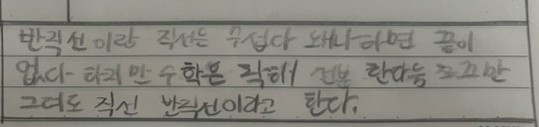 반직선이랑 직선은 무섭다 왜냐하면 끝이
없다- 하지만 수학은 직해 선분 한다는 조끄만
그더도 직선 반직선이라고 한다.